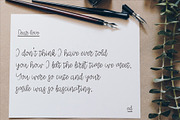 Dear love
I don't think I have ever told
you how I felt the first time we meet.
You were so cute and your
smile was so fascinating.